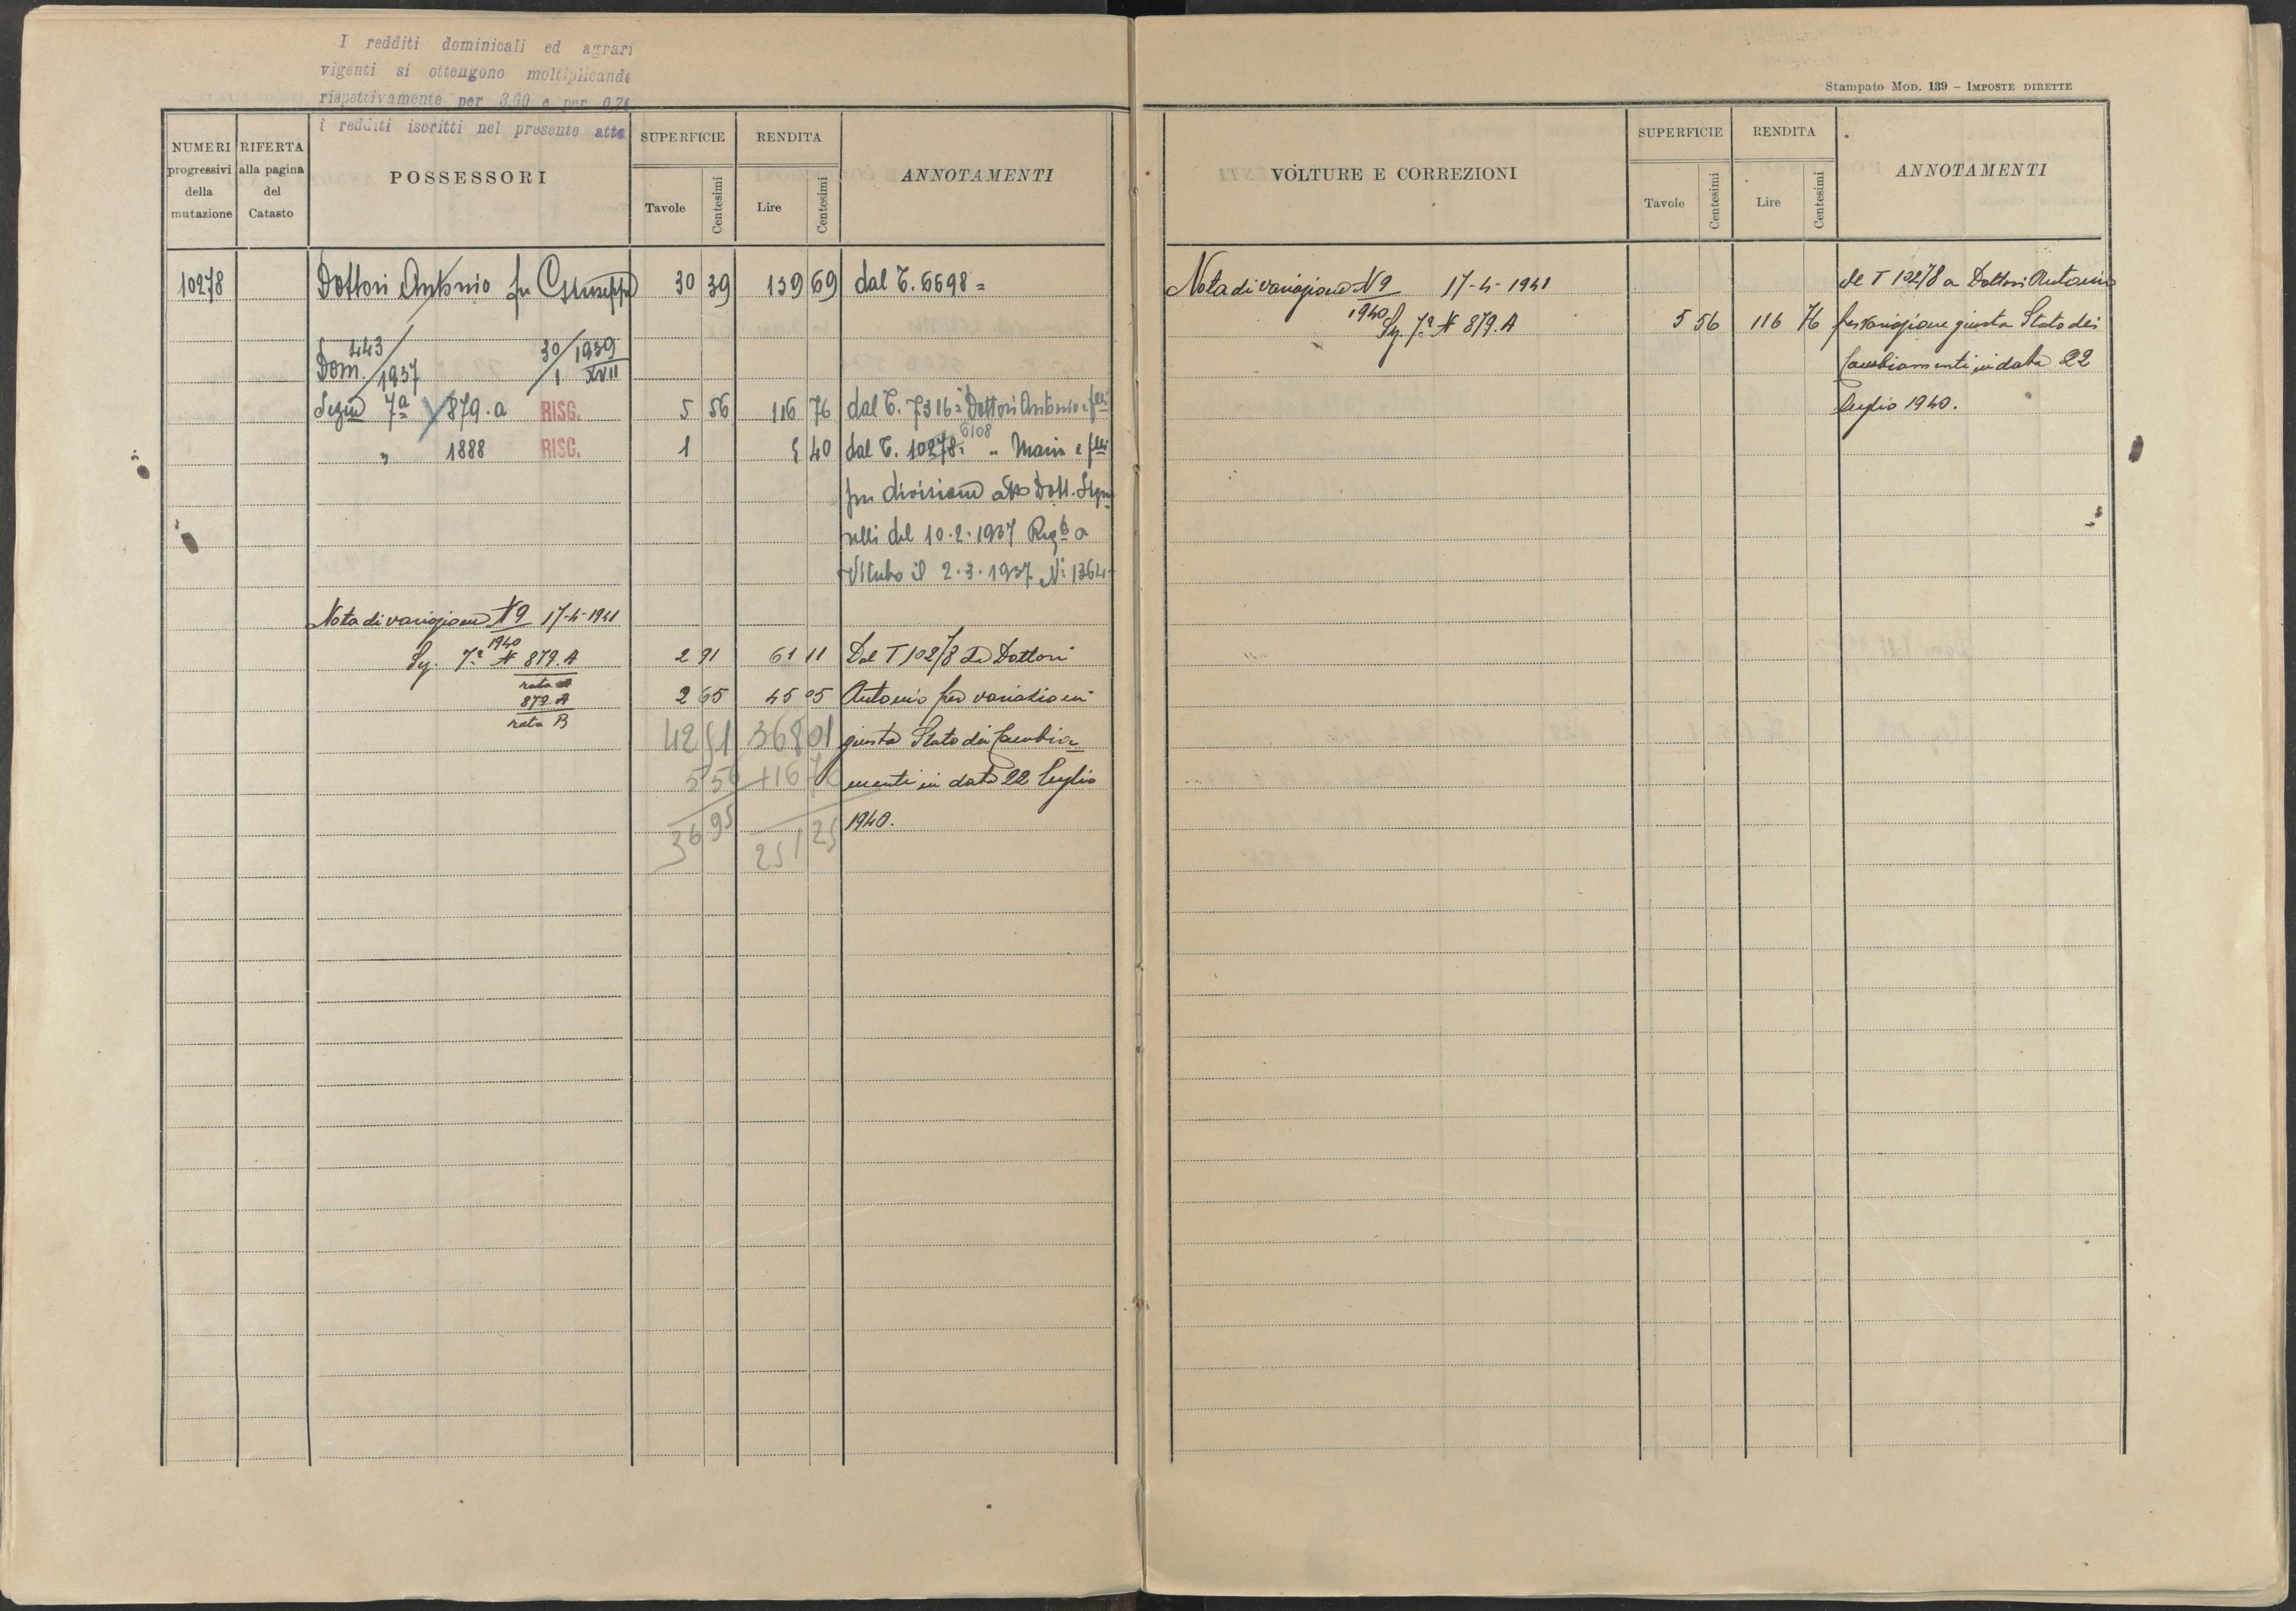 I redditi dominicali ed agrari
vigenti si ottengono moltiplicando
rispettivamente per 3,60 e per 0,74
i redditi iscritti nel presente atto
NUMERI progressivi della mutazione
RIFERTA alla pagina del Catasto
POSSESSORI
SUPERFICIE
Tavole Centesimi
RENDITA
Lire Centesimi
ANNOTAMENTI
10278 Dottori Antonio fu Giuseppe 30 39 139 69 dal T. 6698 =
Dom. 443/1937 30/1 1939 XVII
Sezne 7a 879.a RISG. 5 56 116 76 dal T. 7316 = Dottori Antonio e flli
" 1888 RISG. 1 5 40 dal T. 10278 = 6108 " Maria e flli
per divisione atto Dott.
del 10.2.1937 Regto a
Viterbo il 2.3.1937 N: 1364
Nota di variazione N 9/1940 17-4-1941
Sez. 7a N 879.A rata A 2 91 61 11 Dal T 10278 da Dottori
879.A rata B 2 65 45 05 Antonio per variazioni
42 51 368 01 giusta Stato dei Cambia
5 56 116 76 menti in data 22 luglio
36 95 251 25 1940.
Stampato MOD. 139 – IMPOSTE DIRETTE
VOLTURE E CORREZIONI
SUPERFICIE
Tavole Centesimi
RENDITA
Lire Centesimi
ANNOTAMENTI
Nota di variazione N 9/1940 17-4-1941 dal T 10278 a Dottori Antonio
Sez. 7a N 879.A 5 56 116 76 per variazione giusta Stato dei
Cambiamenti in data 22
luglio 1940.